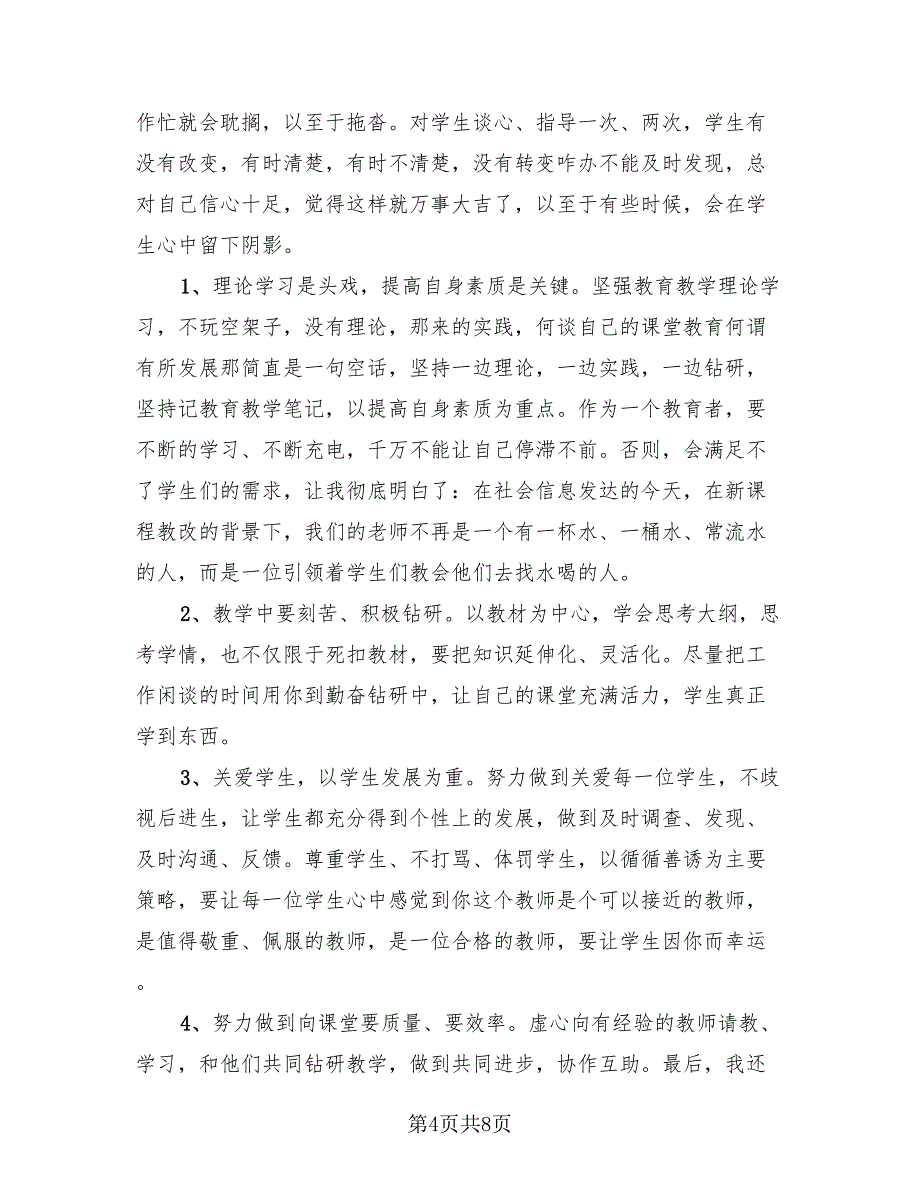 作忙就会耽搁，以至于拖沓。对学生谈心、指导一次、两次，学生有
没有改变，有时清楚，有时不清楚，没有转变咋办不能及时发现，总
对自己信心十足，觉得这样就万事大吉了，以至于有些时候，会在学
生心中留下阴影。
1、理论学习是头戏，提高自身素质是关键。坚强教育教学理论学
习，不玩空架子，没有理论，那来的实践，何谈自己的课堂教育何谓
有所发展那简直是一句空话，坚持一边理论，一边实践，一边钻研，
坚持记教育教学笔记，以提高自身素质为重点。作为一个教育者，要
不断的学习、不断充电，千万不能让自己停滞不前。否则，会满足不
了学生们的需求，让我彻底明白了：在社会信息发达的今天，在新课
程教改的背景下，我们的老师不再是一个有一杯水、一桶水、常流水
的人，而是一位引领着学生们教会他们去找水喝的人。
2、教学中要刻苦、积极钻研。以教材为中心，学会思考大纲，思
考学情，也不仅限于死扣教材，要把知识延伸化、灵活化。尽量把工
作闲谈的时间用你到勤奋钻研中，让自己的课堂充满活力，学生真正
学到东西。
3、关爱学生，以学生发展为重。努力做到关爱每一位学生，不歧
视后进生，让学生都充分得到个性上的发展，做到及时调查、发现、
及时沟通、反馈。尊重学生、不打骂、体罚学生，以循循善诱为主要
策略，要让每一位学生心中感觉到你这个教师是个可以接近的教师，
是值得敬重、佩服的教师，是一位合格的教师，要让学生因你而幸运
。
4、努力做到向课堂要质量、要效率。虚心向有经验的教师请教、
学习，和他们共同钻研教学，做到共同进步，协作互助。最后，我还
第4页共8页